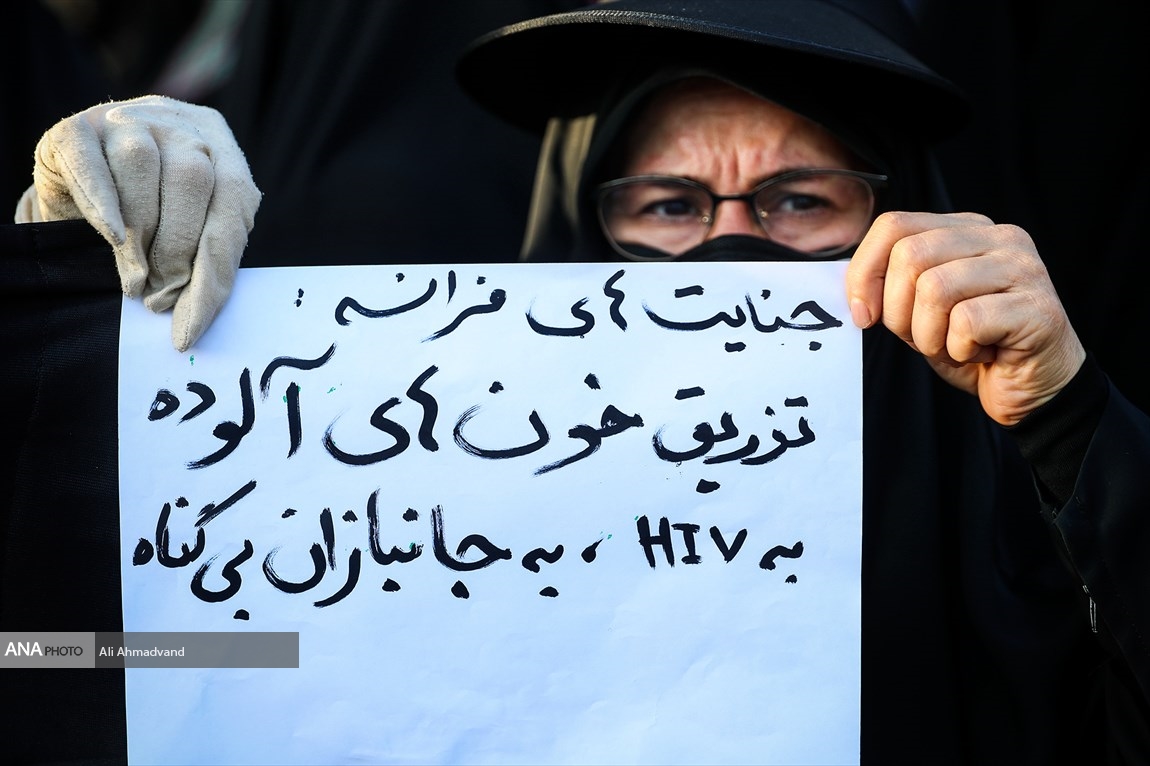 جنایت های فرانسه :
تزریق خون های آلوده
به HIV ، به جانبازان بی گناه
ANA PHOTO Ali Ahmadvand